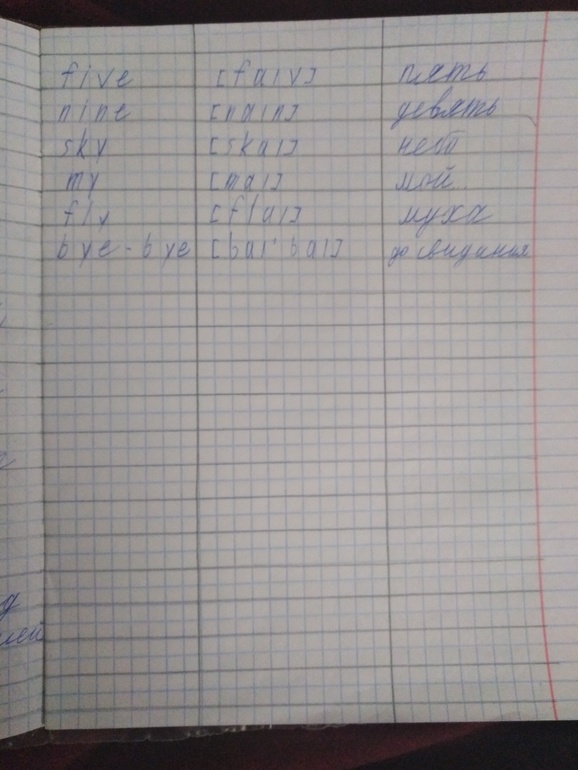 five [faiv] пять
nine [nain] девять
sky [skai] небо
my [mai] мой
fly [flai] муха
bye-bye [bai'bai] до свидания